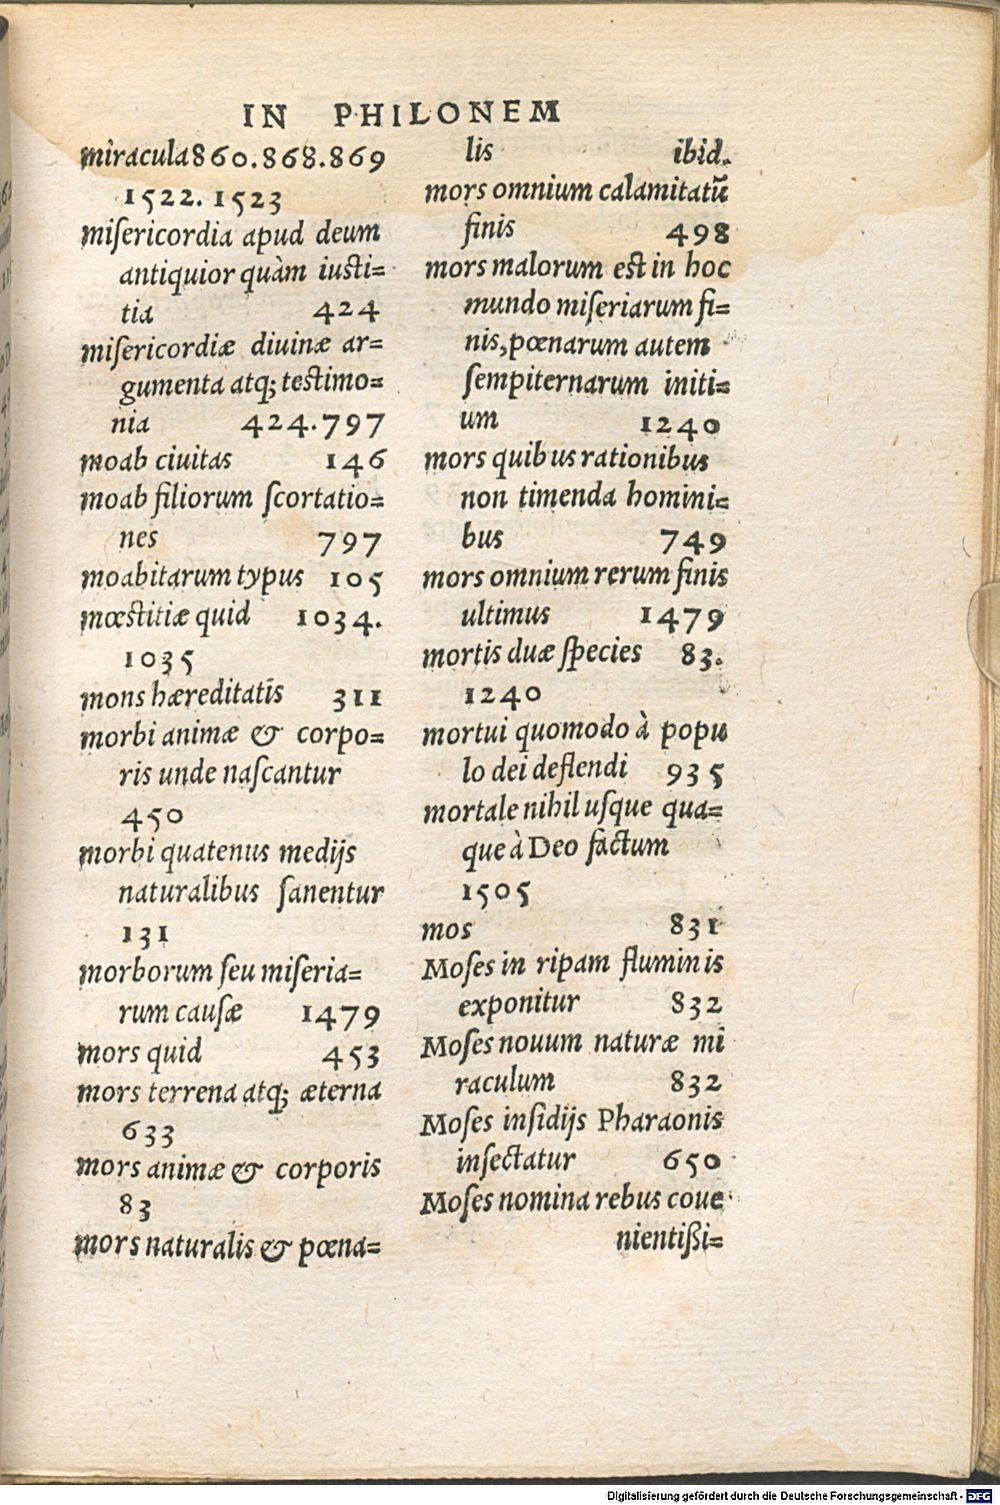 IN PHILONEM
miracula 860.868.869
1522. 1523
miſericordia apud deum
antiquior quàm iuſti=
tia 424
miſericordiæ diuinæ ar=
gumenta atq; teſtimo=
nia 424.797
moab ciuitas 146
moab filiorum ſcortatio=
nes 797
moabitarum typus 105
mœſtitiæ quid 1034.
1035
mons hæreditatis 311
morbi animæ & corpo=
ris unde naſcantur
450
morbi quatenus medijs
naturalibus ſanentur
131
morborum ſeu miſeria=
rum cauſæ 1479
mors quid 453
mors terrena atq; æterna
633
mors animæ & corporis
83
mors naturalis & pœna=
lis ibid.
mors omnium calamitatũ
finis 498
mors malorum eſt in hoc
mundo miſeriarum fi=
nis, pœnarum autem
ſempiternarum initi=
um 1240
mors quibus rationibus
non timenda homini=
bus 749
mors omnium rerum finis
ultimus 1479
mortis duæ ſpecies 83.
1240
mortui quomodo à popu
lo dei deflendi 935
mortale nihil uſque qua=
que à Deo factum
1505
mos 831
Moſes in ripam fluminis
exponitur 832
Moſes nouum naturæ mi
raculum 832
Moſes inſidijs Pharaonis
inſectatur 650
Moſes nomina rebus coue
nientißi=
Digitalisierung gefördert durch die Deutsche Forschungsgemeinschaft - DFG